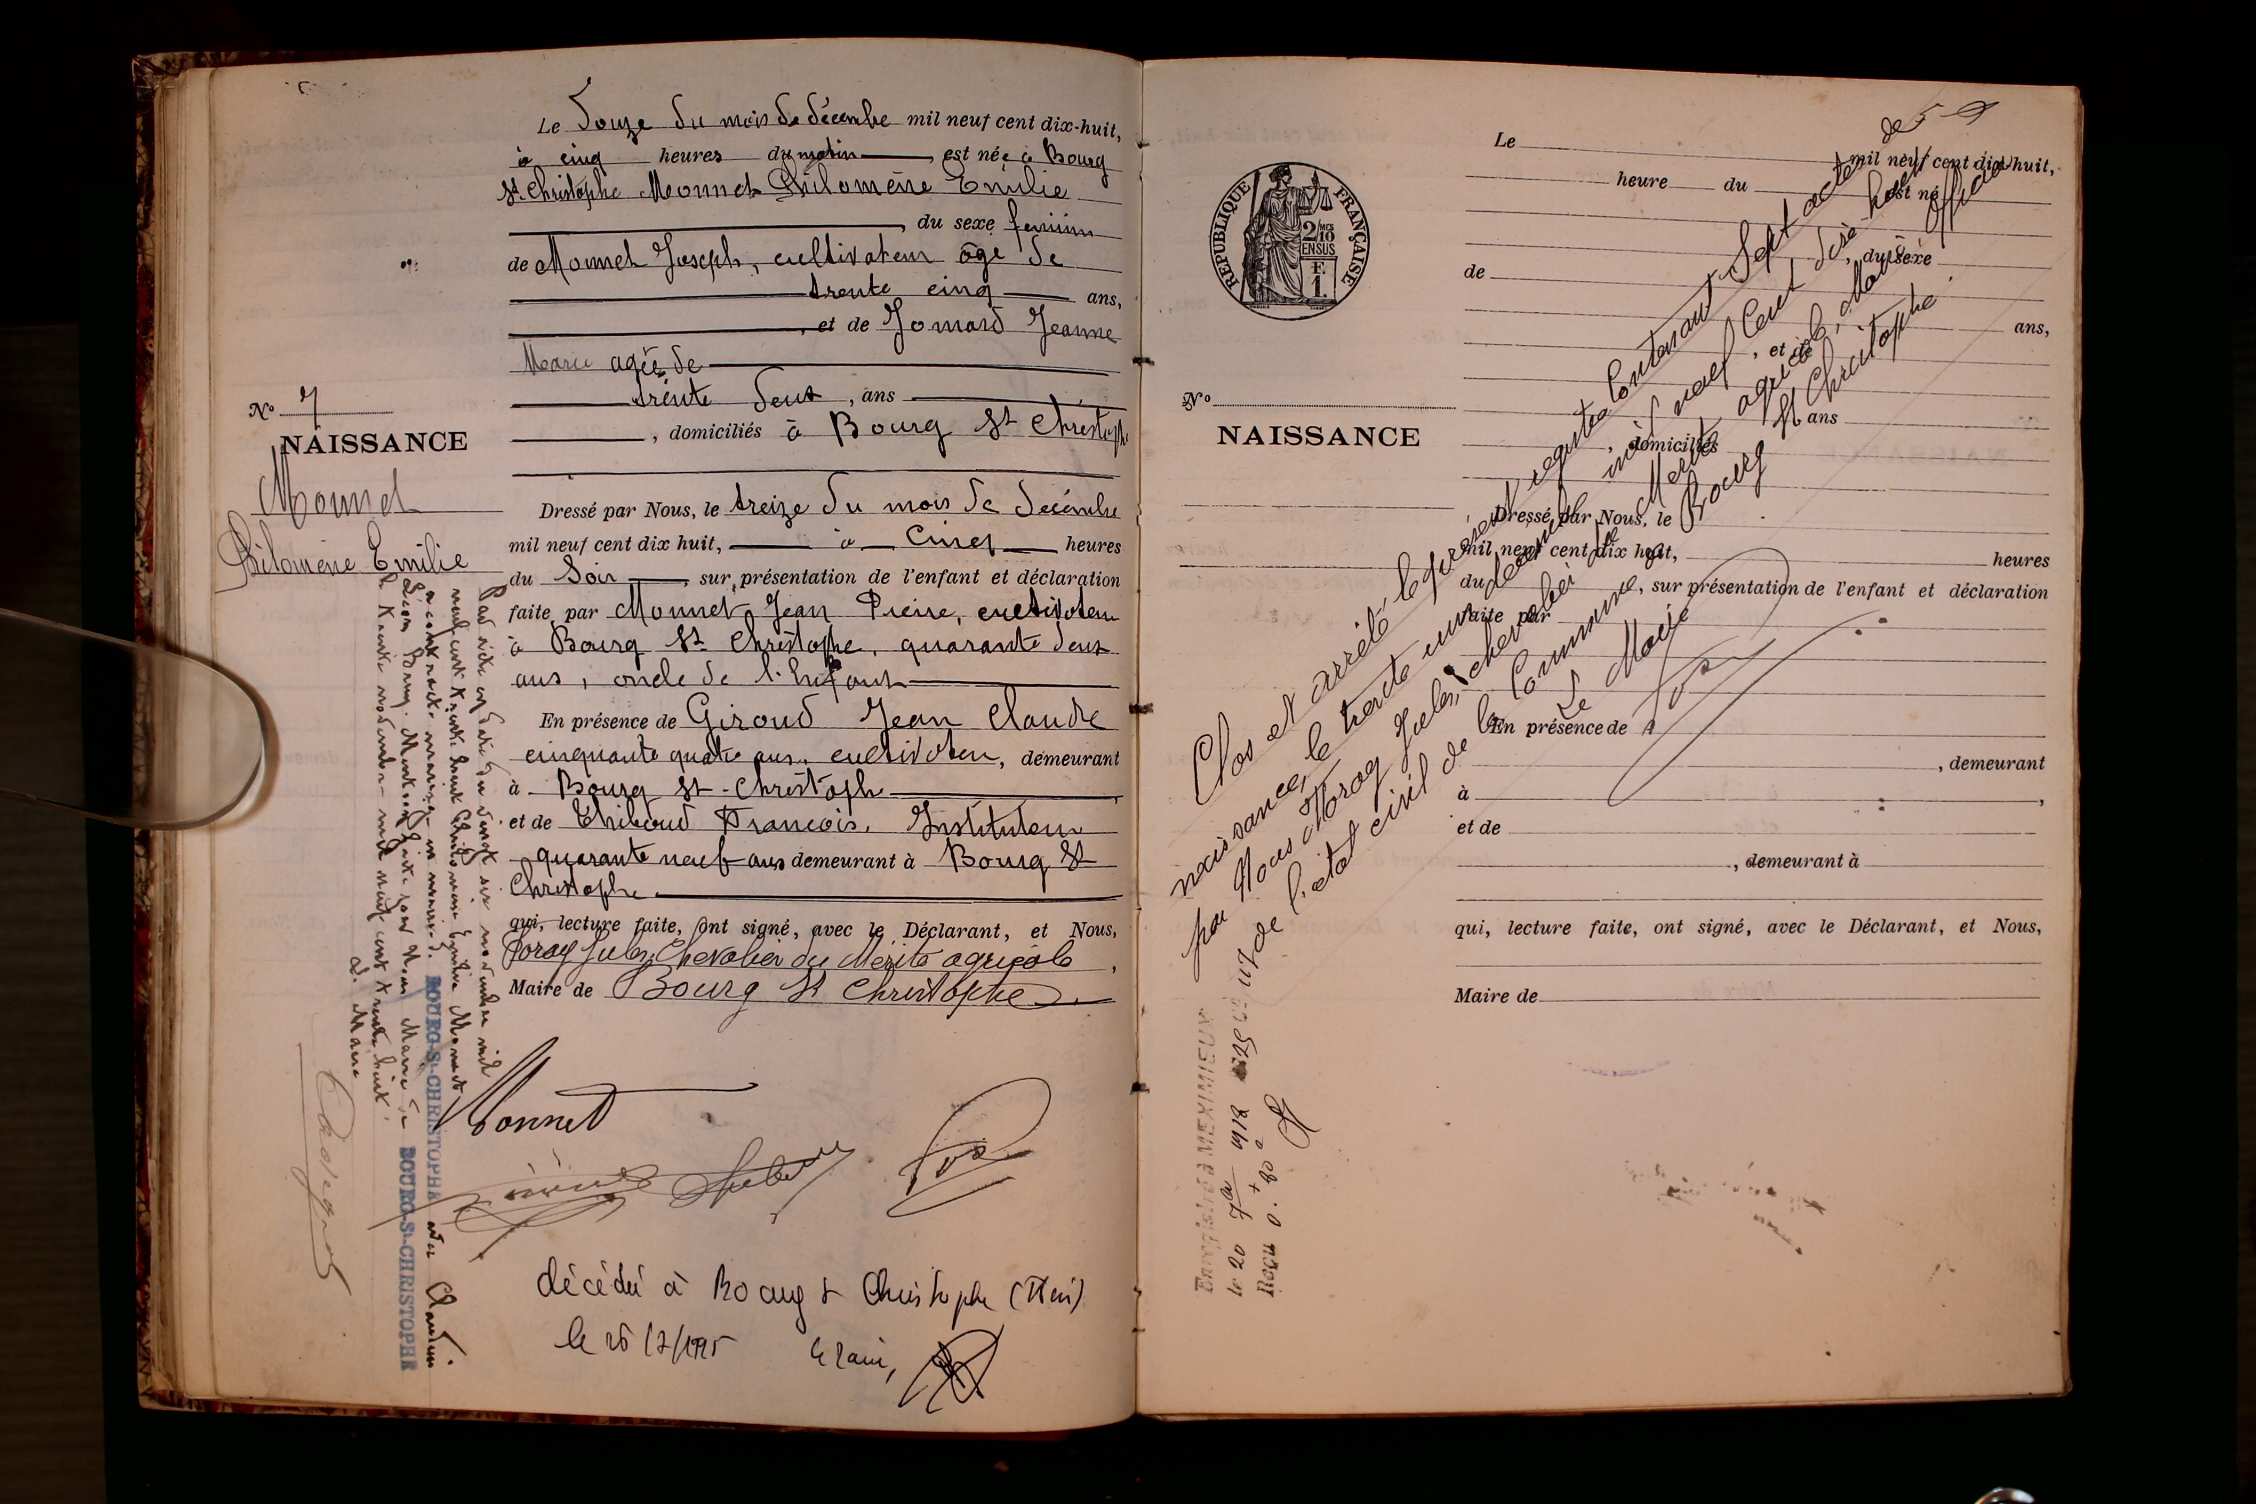 Le Douze du mois de décembre mil neuf cent dix-huit,
à cinq heures du matin, est née à Bourg
St. Christophe Monnet Philomène Emilie
, du sexe féminin
de Monnet Joseph, cultivateur âgé de
trente cinq ans,
, et de Jomard Jeanne
Marie agée de
trente deux, ans
, domiciliés à Bourg St Christophe
Nº 7
NAISSANCE
Monnet
Philomène Emilie
Dressé par Nous, le treize du mois de décembre
mil neuf cent dix huit, à Cinq heures
du Soir, sur présentation de l'enfant et déclaration
faite par Monnet Jean Pierre, cultivateur
à Bourg St Christophe, quarante deux
ans, oncle de l'Enfant
En présence de Giroud Jean Claude
cinquante quatre ans, cultivateur, demeurant
à Bourg St-Christophe
et de Thiboud François, Instituteur
quarante neuf ans demeurant à Bourg St
Christophe.
qui, lecture faite, ont signé, avec le Déclarant, et Nous,
Jules, Chevalier du Mérite agricole,
Maire de Bourg St Christophe.
Par acte en date du vingt six novembre mil
neuf cent trente huit Philomène Emilie Monnet
a contracté mariage en mairie de BOURG-St-CHRISTOPHE avec Claudius
par Nous Maire de BOURG-St-CHRISTOPHE
le trente novembre mil neuf cent trente huit.
Le Maire
Monnet
décédée à Bourg St Christophe (Ain)
le
REPUBLIQUE FRANÇAISE
2/10 EN SUS
F. 1.
Le mil neuf cent dix-huit,
heure du est né
, du sexe
de
ans,
, et de
ans
, domiciliés
Nº
NAISSANCE
Dressé par Nous, le
mil neuf cent dix huit, heures
du , sur présentation de l'enfant et déclaration
faite par
En présence de
, demeurant
à ,
et de
, demeurant à
qui, lecture faite, ont signé, avec le Déclarant, et Nous,
Maire de
Clos et arrêté le présent registre Contenant Sept actes de
naissances, le trente un décembre mil neuf Cent dix huit
par Nous Jules, chevalier du Mérite agricole, Maire officier
de l'état civil de la Commune de Bourg St Christophe.
Le Maire
Enregistré à MEXIMIEUX
le 20 1918
Reçu